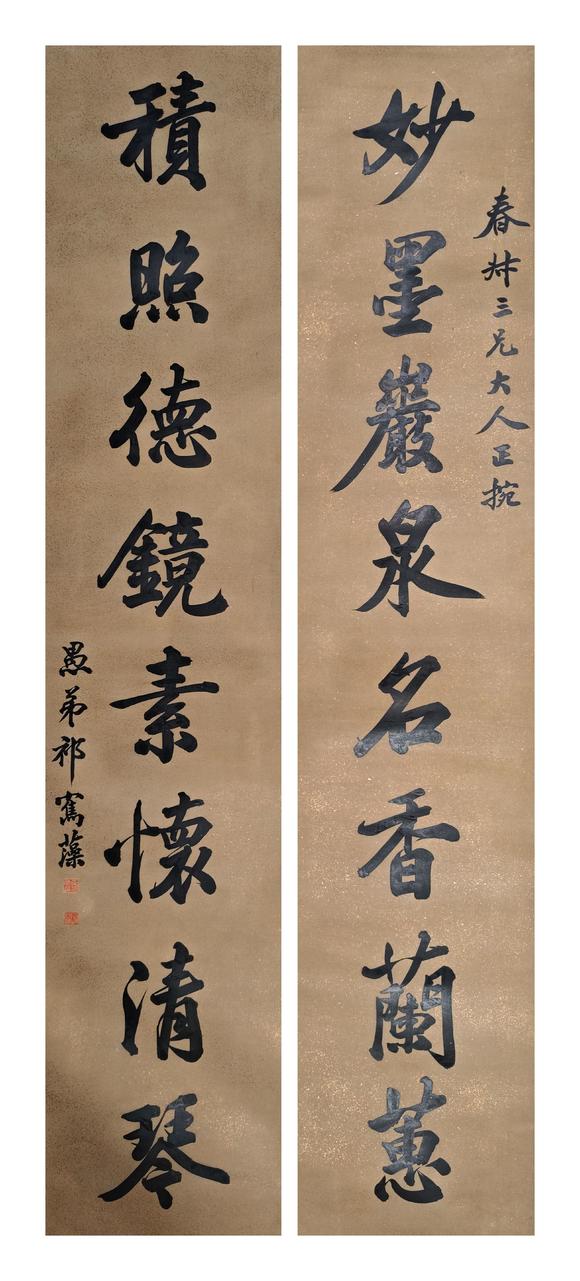 春卅三兄大人正捥
妙墨巖泉名香蘭蕙
積照德鏡素懷清琴
愚弟祁寯藻